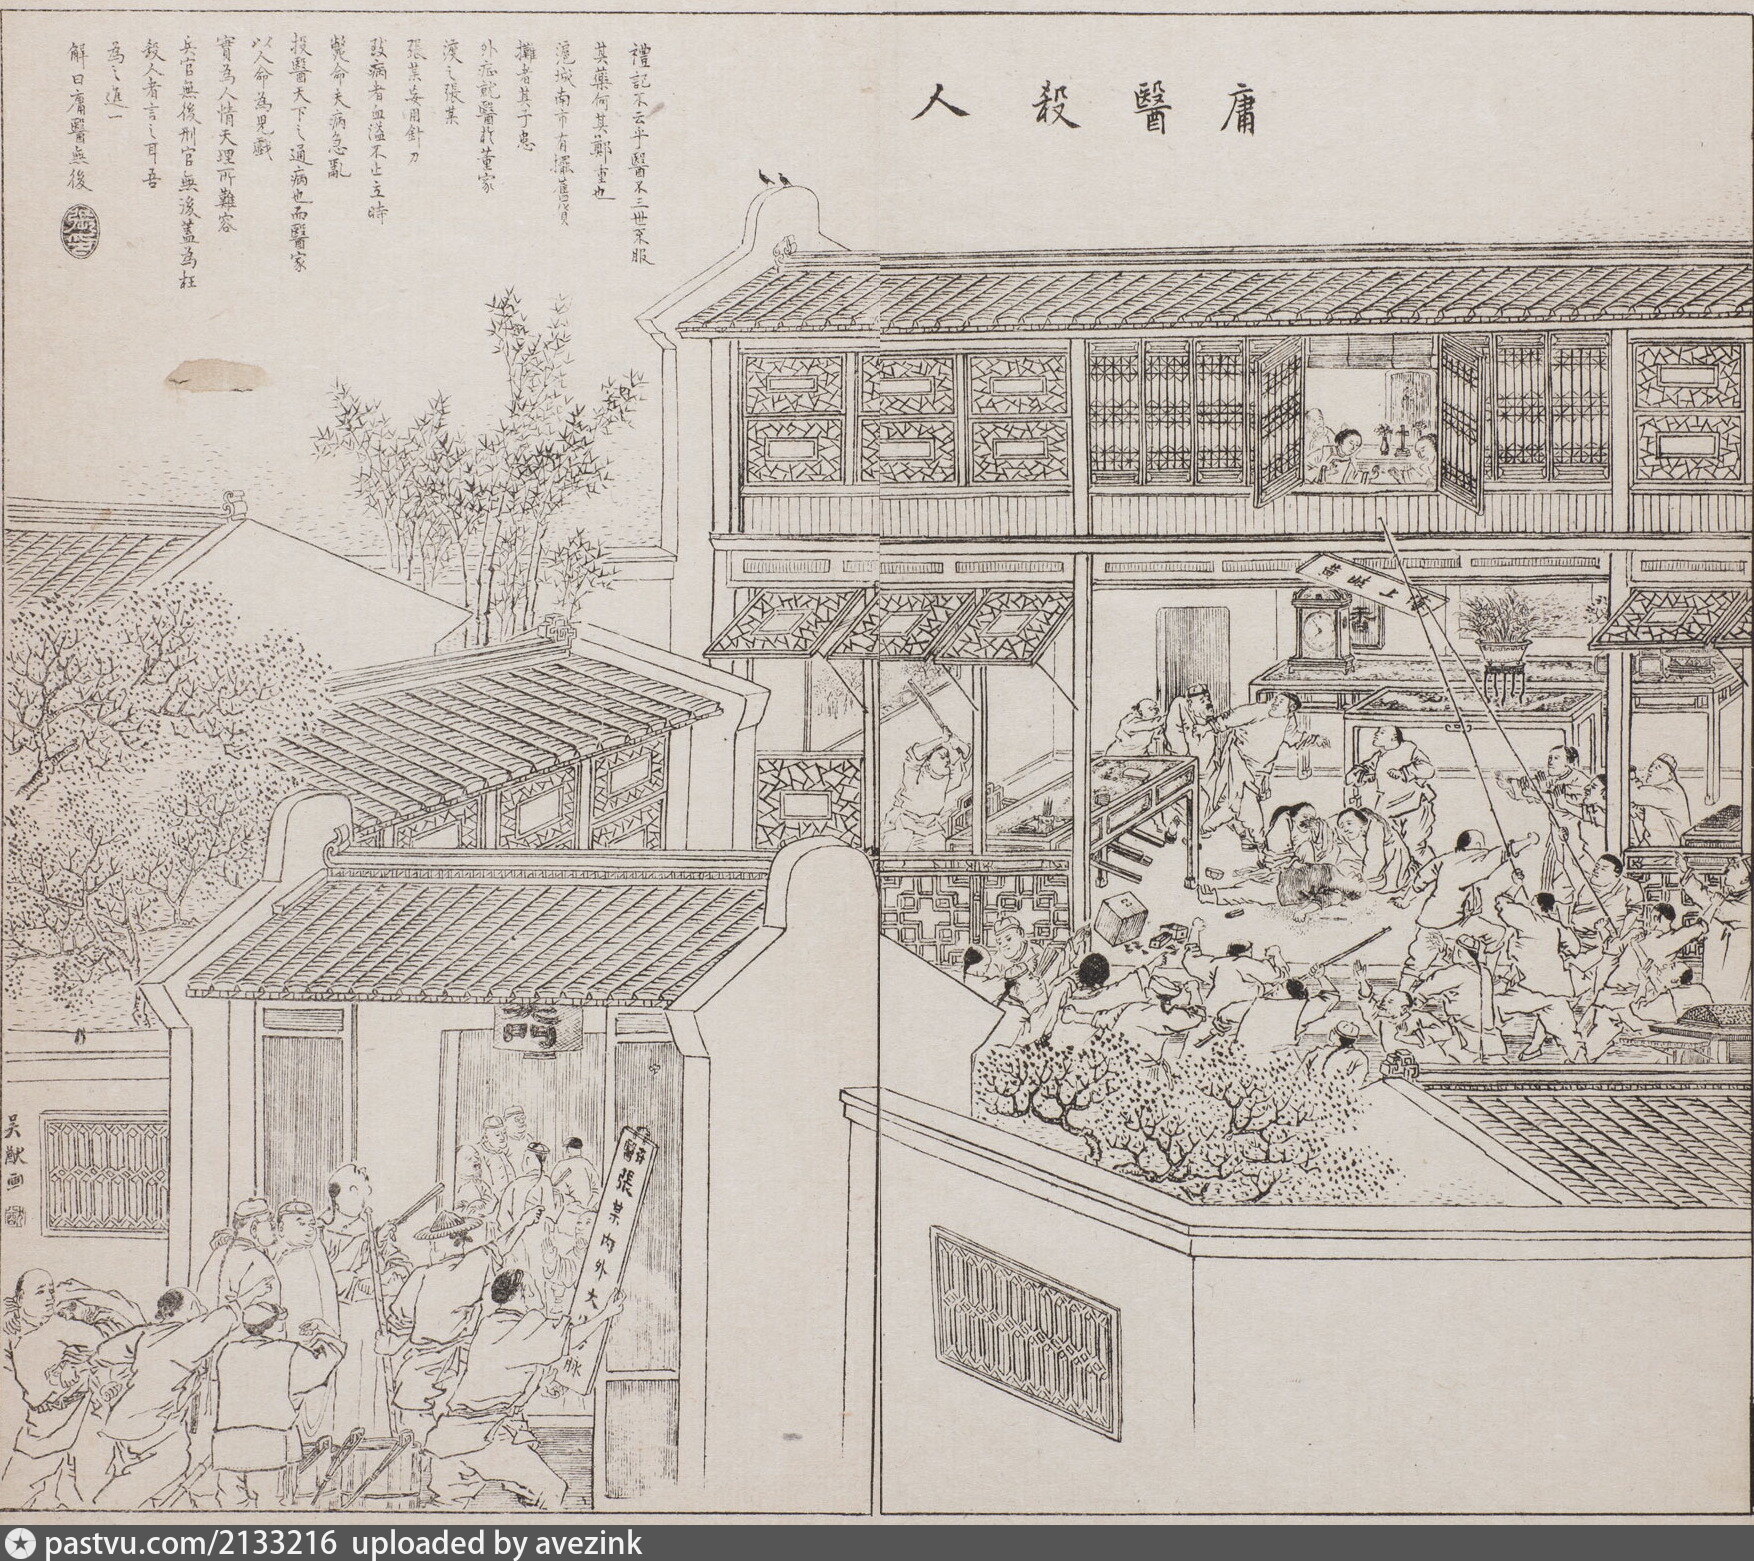 庸醫殺人
禮記不云乎醫不三世不服
其藥何其鄭重也
滬城南市有擺舊貨
攤者其子患
外症就醫於董家
渡之張某
張某妄用針刀
致病者血溢不止立時
斃命夫病急亂
投醫天下之通病也而醫家
以人命為兒戲
實為人情天理所難容
兵官無後刑官無後蓋為枉
殺人者言之耳吾
為之進一
解曰庸醫無後
醫張某內外大
脈
吳猷画
pastvu.com/2133216 uploaded by avezink